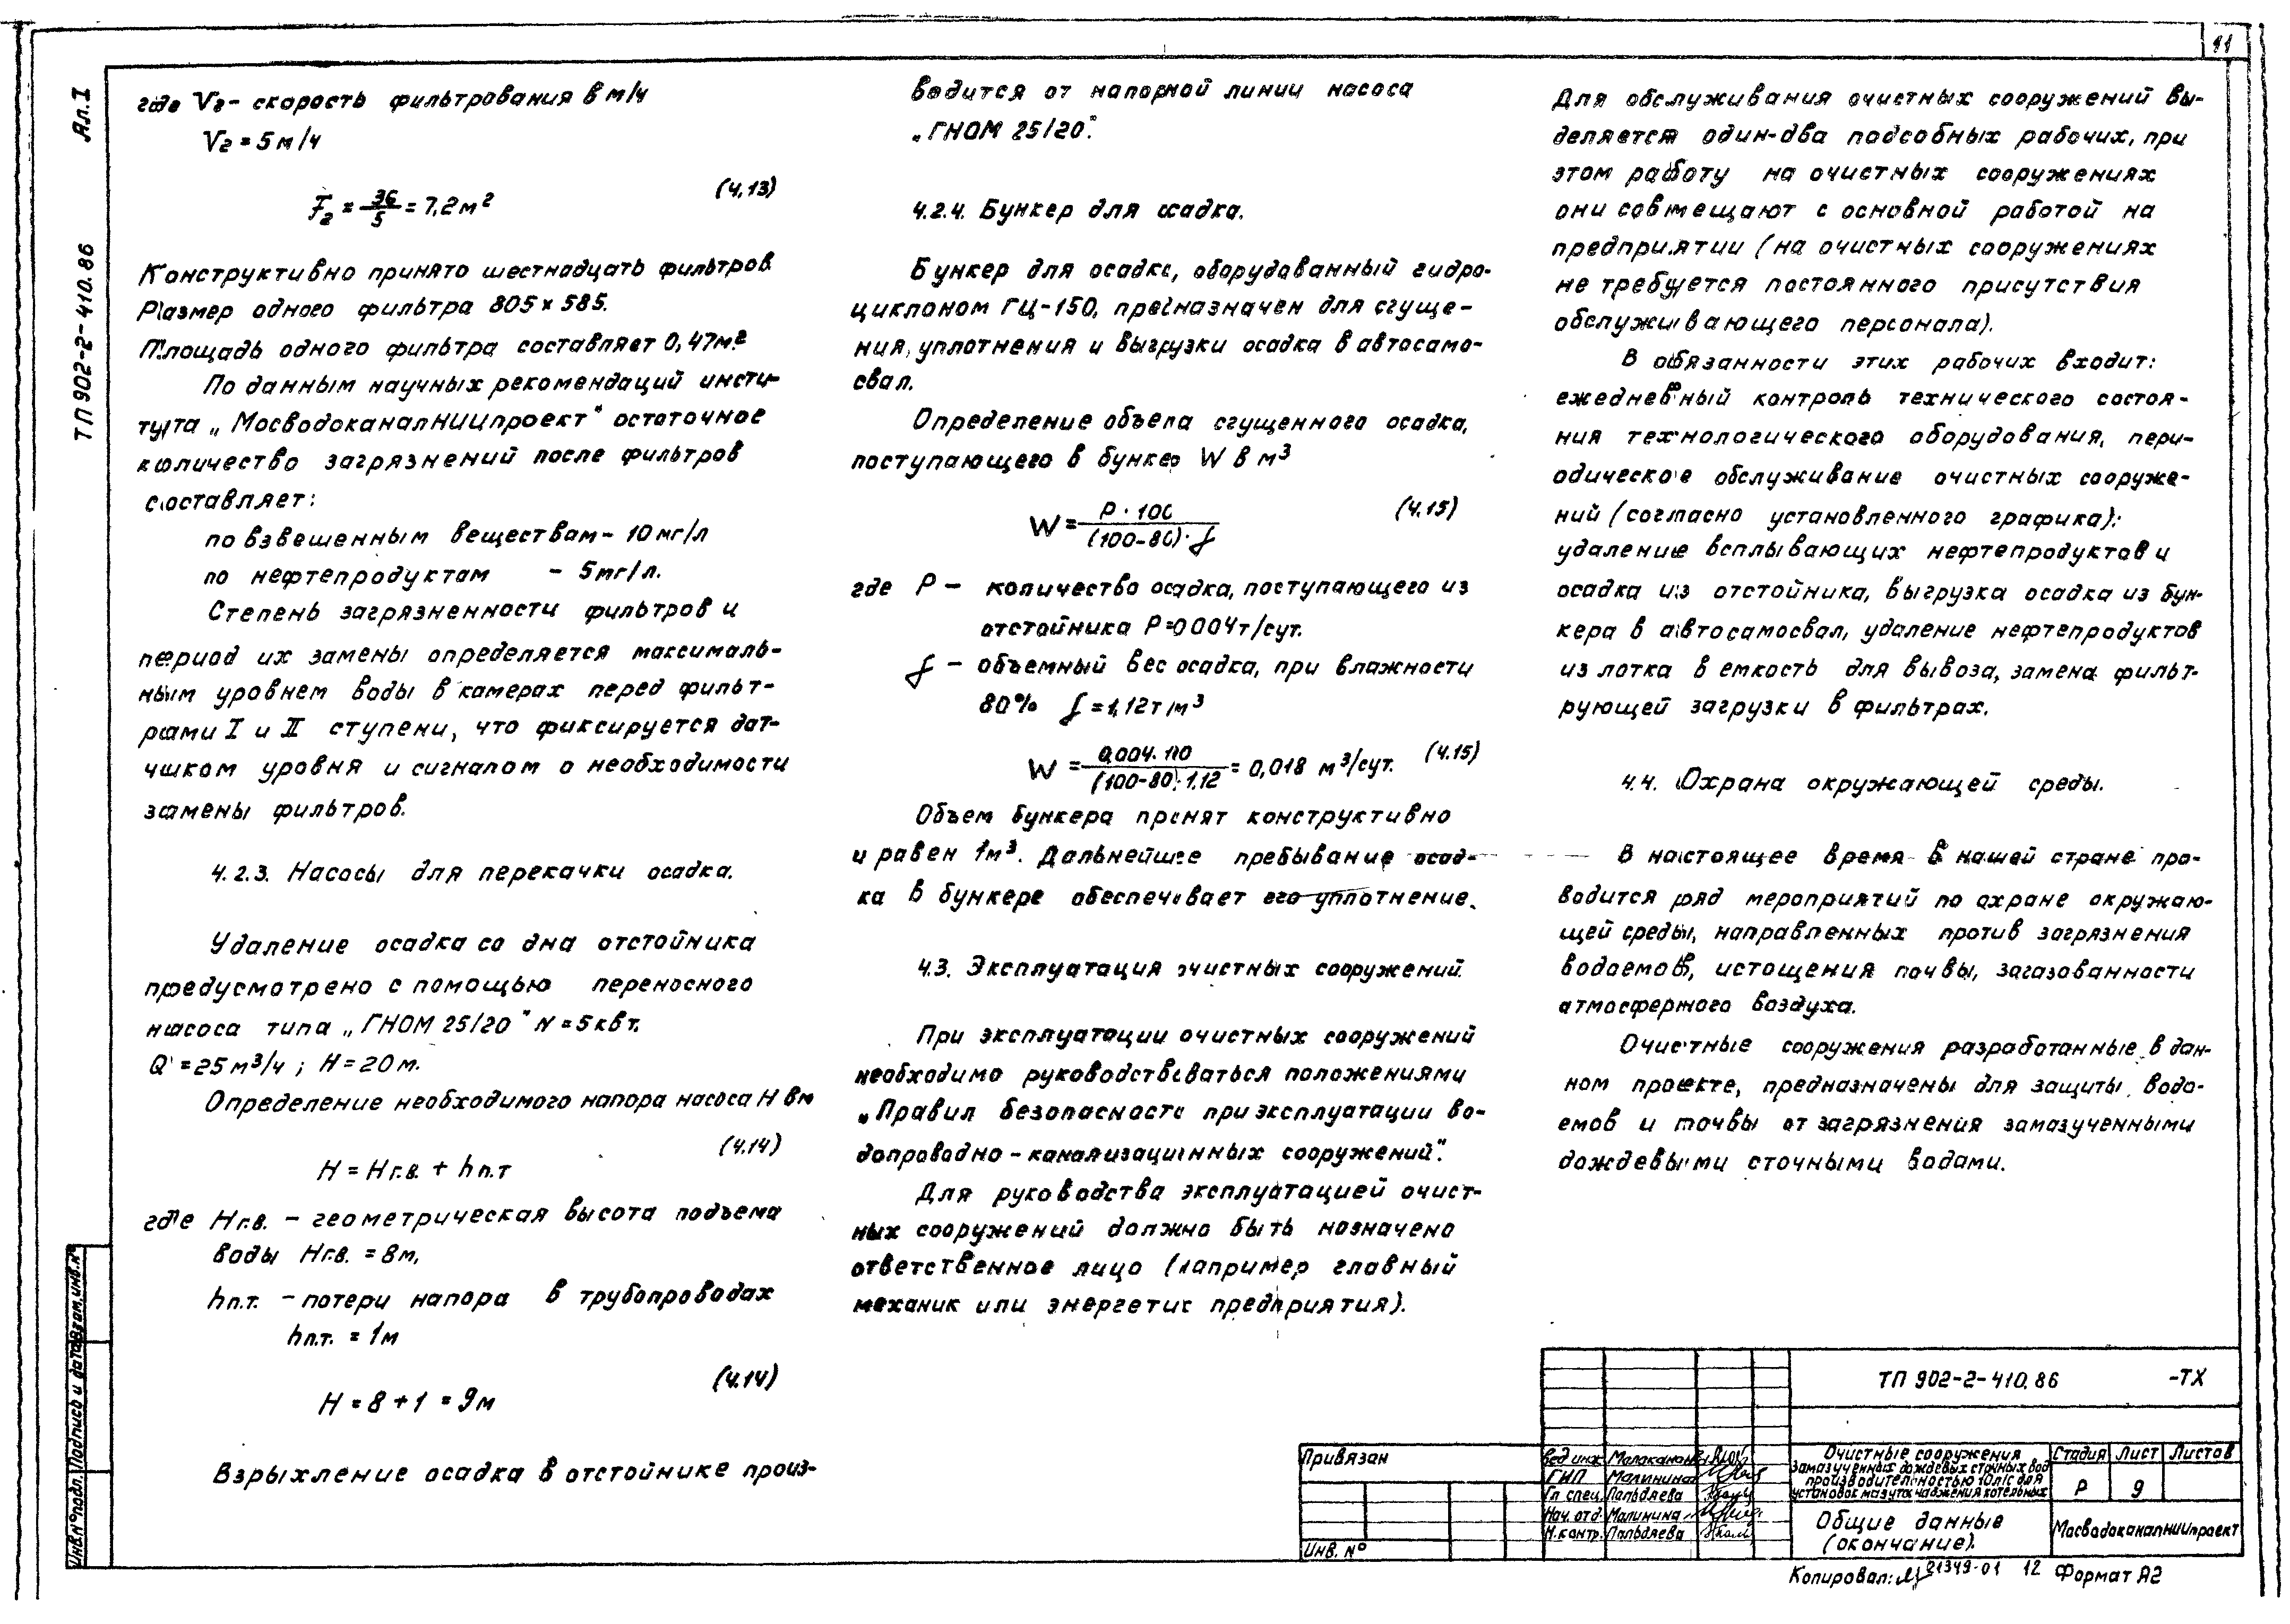 11
Ал. I
ТП 902-2-410.86
где V₂ - скорость фильтрования в м/ч
V₂ = 5 м/ч
F₂ = 36/5 = 7,2 м² (4.13)
Конструктивно принято шестнадцать фильтров.
Размер одного фильтра 805 × 585.
Площадь одного фильтра составляет 0,47 м².
По данным научных рекомендаций инсти-
тута „МосводоканалНИИпроект" остаточное
количество загрязнений после фильтров
составляет:
по взвешенным веществам - 10 мг/л
по нефтепродуктам - 5 мг/л.
Степень загрязненности фильтров и
период их замены определяется максималь-
ным уровнем воды в камерах перед фильт-
рами I и II ступени, что фиксируется дат-
чиком уровня и сигналом о необходимости
замены фильтров.
4.2.3. Насосы для перекачки осадка.
Удаление осадка со дна отстойника
предусмотрено с помощью переносного
насоса типа „ГНОМ 25/20" N = 5 квт.
Q = 25 м³/ч ; H = 20 м.
Определение необходимого напора насоса H в м
(4.14)
H = Hг.в. + hп.т
где Hг.в. - геометрическая высота подъема
воды Hг.в. = 8 м,
hп.т. - потери напора в трубопроводах
hп.т. = 1 м
(4.14)
H = 8 + 1 = 9 м
Взрыхление осадка в отстойнике произ-
водится от напорной линии насоса
„ГНОМ 25/20".
4.2.4. Бункер для осадка.
Бункер для осадка, оборудованный гидро-
циклоном ГЦ-150, предназначен для сгуще-
ния, уплотнения и выгрузки осадка в автосамо-
свал.
Определение объема сгущенного осадка,
поступающего в бункер W в м³
W = P · 100 / (100-80) · f (4.15)
где P - количество осадка, поступающего из
отстойника P = 0.004 т/сут.
f - объемный вес осадка, при влажности
80% f = 1,12 т/м³
W = 0,004 · 100 / (100-80) · 1,12 = 0,018 м³/сут. (4.15)
Объем бункера принят конструктивно
и равен 1 м³. Дальнейшее пребывание осад-
ка в бункере обеспечивает его уплотнение.
4.3. Эксплуатация очистных сооружений.
При эксплуатации очистных сооружений
необходимо руководствоваться положениями
„Правил безопасности при эксплуатации во-
допроводно-канализационных сооружений".
Для руководства эксплуатацией очист-
ных сооружений должно быть назначено
ответственное лицо (например главный
механик или энергетик предприятия).
Для обслуживания очистных сооружений вы-
деляется один-два подсобных рабочих, при
этом работу на очистных сооружениях
они совмещают с основной работой на
предприятии (на очистных сооружениях
не требуется постоянного присутствия
обслуживающего персонала).
В обязанности этих рабочих входит:
ежедневный контроль технического состоя-
ния технологического оборудования, пери-
одическое обслуживание очистных сооруже-
ний (согласно установленного графика):
удаление всплывающих нефтепродуктов и
осадка из отстойника, выгрузка осадка из бун-
кера в автосамосвал, удаление нефтепродуктов
из лотка в емкость для вывоза, замена фильт-
рующей загрузки в фильтрах.
4.4. Охрана окружающей среды.
В настоящее время в нашей стране про-
водится ряд мероприятий по охране окружаю-
щей среды, направленных против загрязнения
водоемов, истощения почвы, загазованности
атмосферного воздуха.
Очистные сооружения разработанные в дан-
ном проекте, предназначены для защиты водо-
емов и почвы от загрязнения замазученными
дождевыми сточными водами.
Инв. № подл. Подпись и дата Взам. инв. №
Привязан
Инв. №
ТП 902-2-410.86 -ТХ
Вед. инж.
ГИП Малинина
Гл. спец. Пальдяева
Нач. отд. Малинина
Н. контр. Пальдяева
Очистные сооружения
замазученных дождевых сточных вод
производительностью 10 л/с для
установок мазутоснабжения котельных
Стадия Лист Листов
Р 9
Общие данные
(окончание).
МосводоканалНИИпроект
Копировал: 21349-01 12 Формат А2